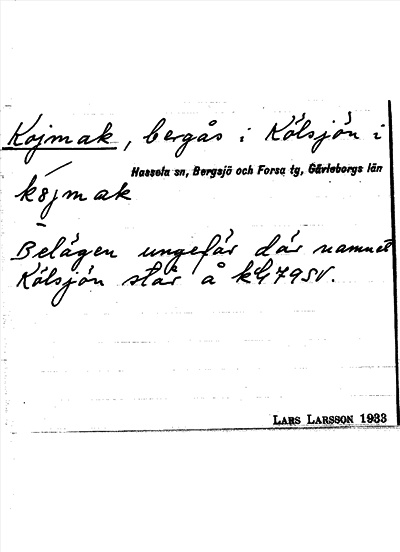 Kojmak, bergås i Kölsjön i
Hassela sn, Bergsjö och Forsa tg, Gävleborgs län
kojmak
Belägen ungefär där namnet
Kölsjön står å kbl 79 SV.
LARS LARSSON 1933